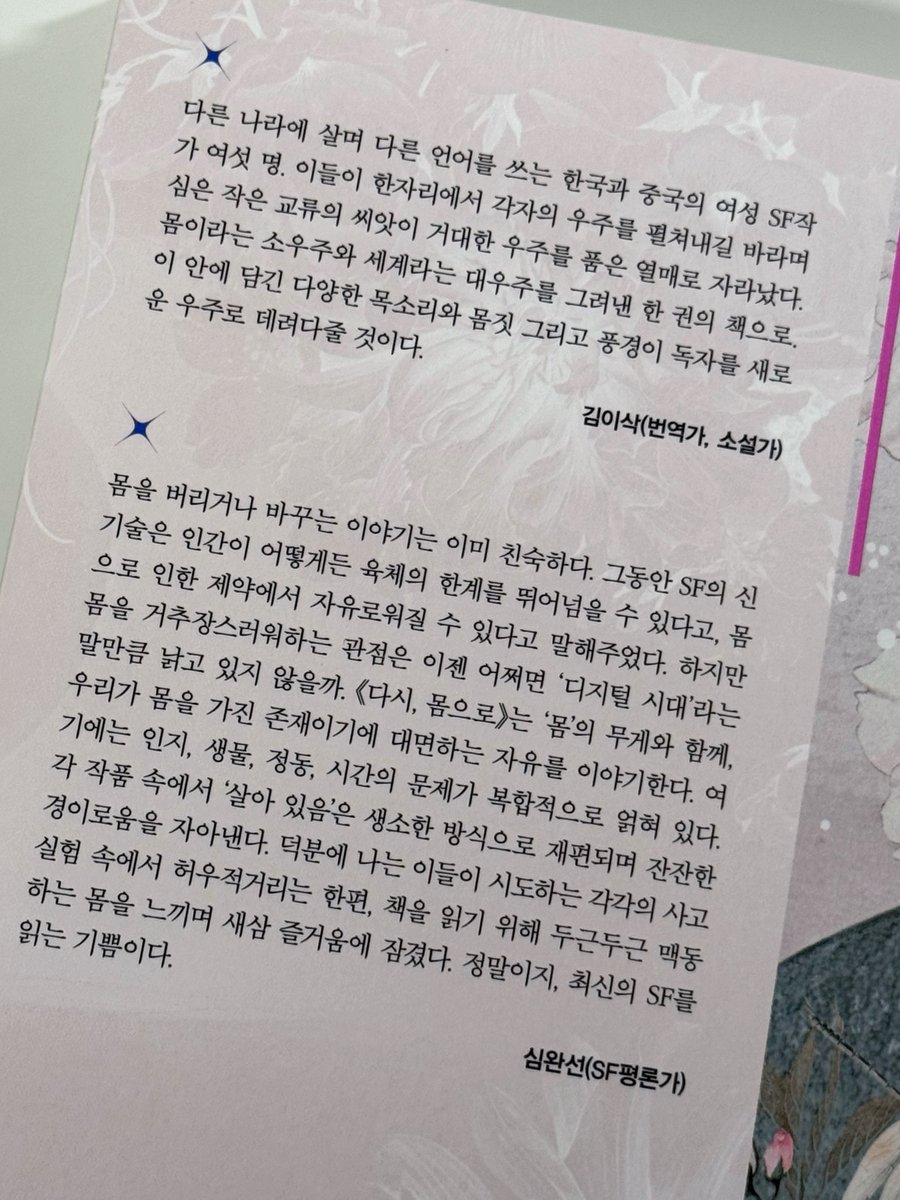 다른 나라에 살며 다른 언어를 쓰는 한국과 중국의 여성 SF작
가 여섯 명. 이들이 한자리에서 각자의 우주를 펼쳐내길 바라며
심은 작은 교류의 씨앗이 거대한 우주를 품은 열매로 자라났다.
몸이라는 소우주와 세계라는 대우주를 그려낸 한 권의 책으로.
이 안에 담긴 다양한 목소리와 몸짓 그리고 풍경이 독자를 새로
운 우주로 데려다줄 것이다.
김이삭(번역가, 소설가)
몸을 버리거나 바꾸는 이야기는 이미 친숙하다. 그동안 SF의 신
기술은 인간이 어떻게든 육체의 한계를 뛰어넘을 수 있다고, 몸
으로 인한 제약에서 자유로워질 수 있다고 말해주었다. 하지만
몸을 거추장스러워하는 관점은 이젠 어쩌면 ‘디지털 시대’라는
말만큼 낡고 있지 않을까. 《다시, 몸으로》는 ‘몸’의 무게와 함께,
우리가 몸을 가진 존재이기에 대면하는 자유를 이야기한다. 여
기에는 인지, 생물, 정동, 시간의 문제가 복합적으로 얽혀 있다.
각 작품 속에서 ‘살아 있음’은 생소한 방식으로 재편되며 잔잔한
경이로움을 자아낸다. 덕분에 나는 이들이 시도하는 각각의 사고
실험 속에서 허우적거리는 한편, 책을 읽기 위해 두근두근 맥동
하는 몸을 느끼며 새삼 즐거움에 잠겼다. 정말이지, 최신의 SF를
읽는 기쁨이다.
심완선(SF평론가)